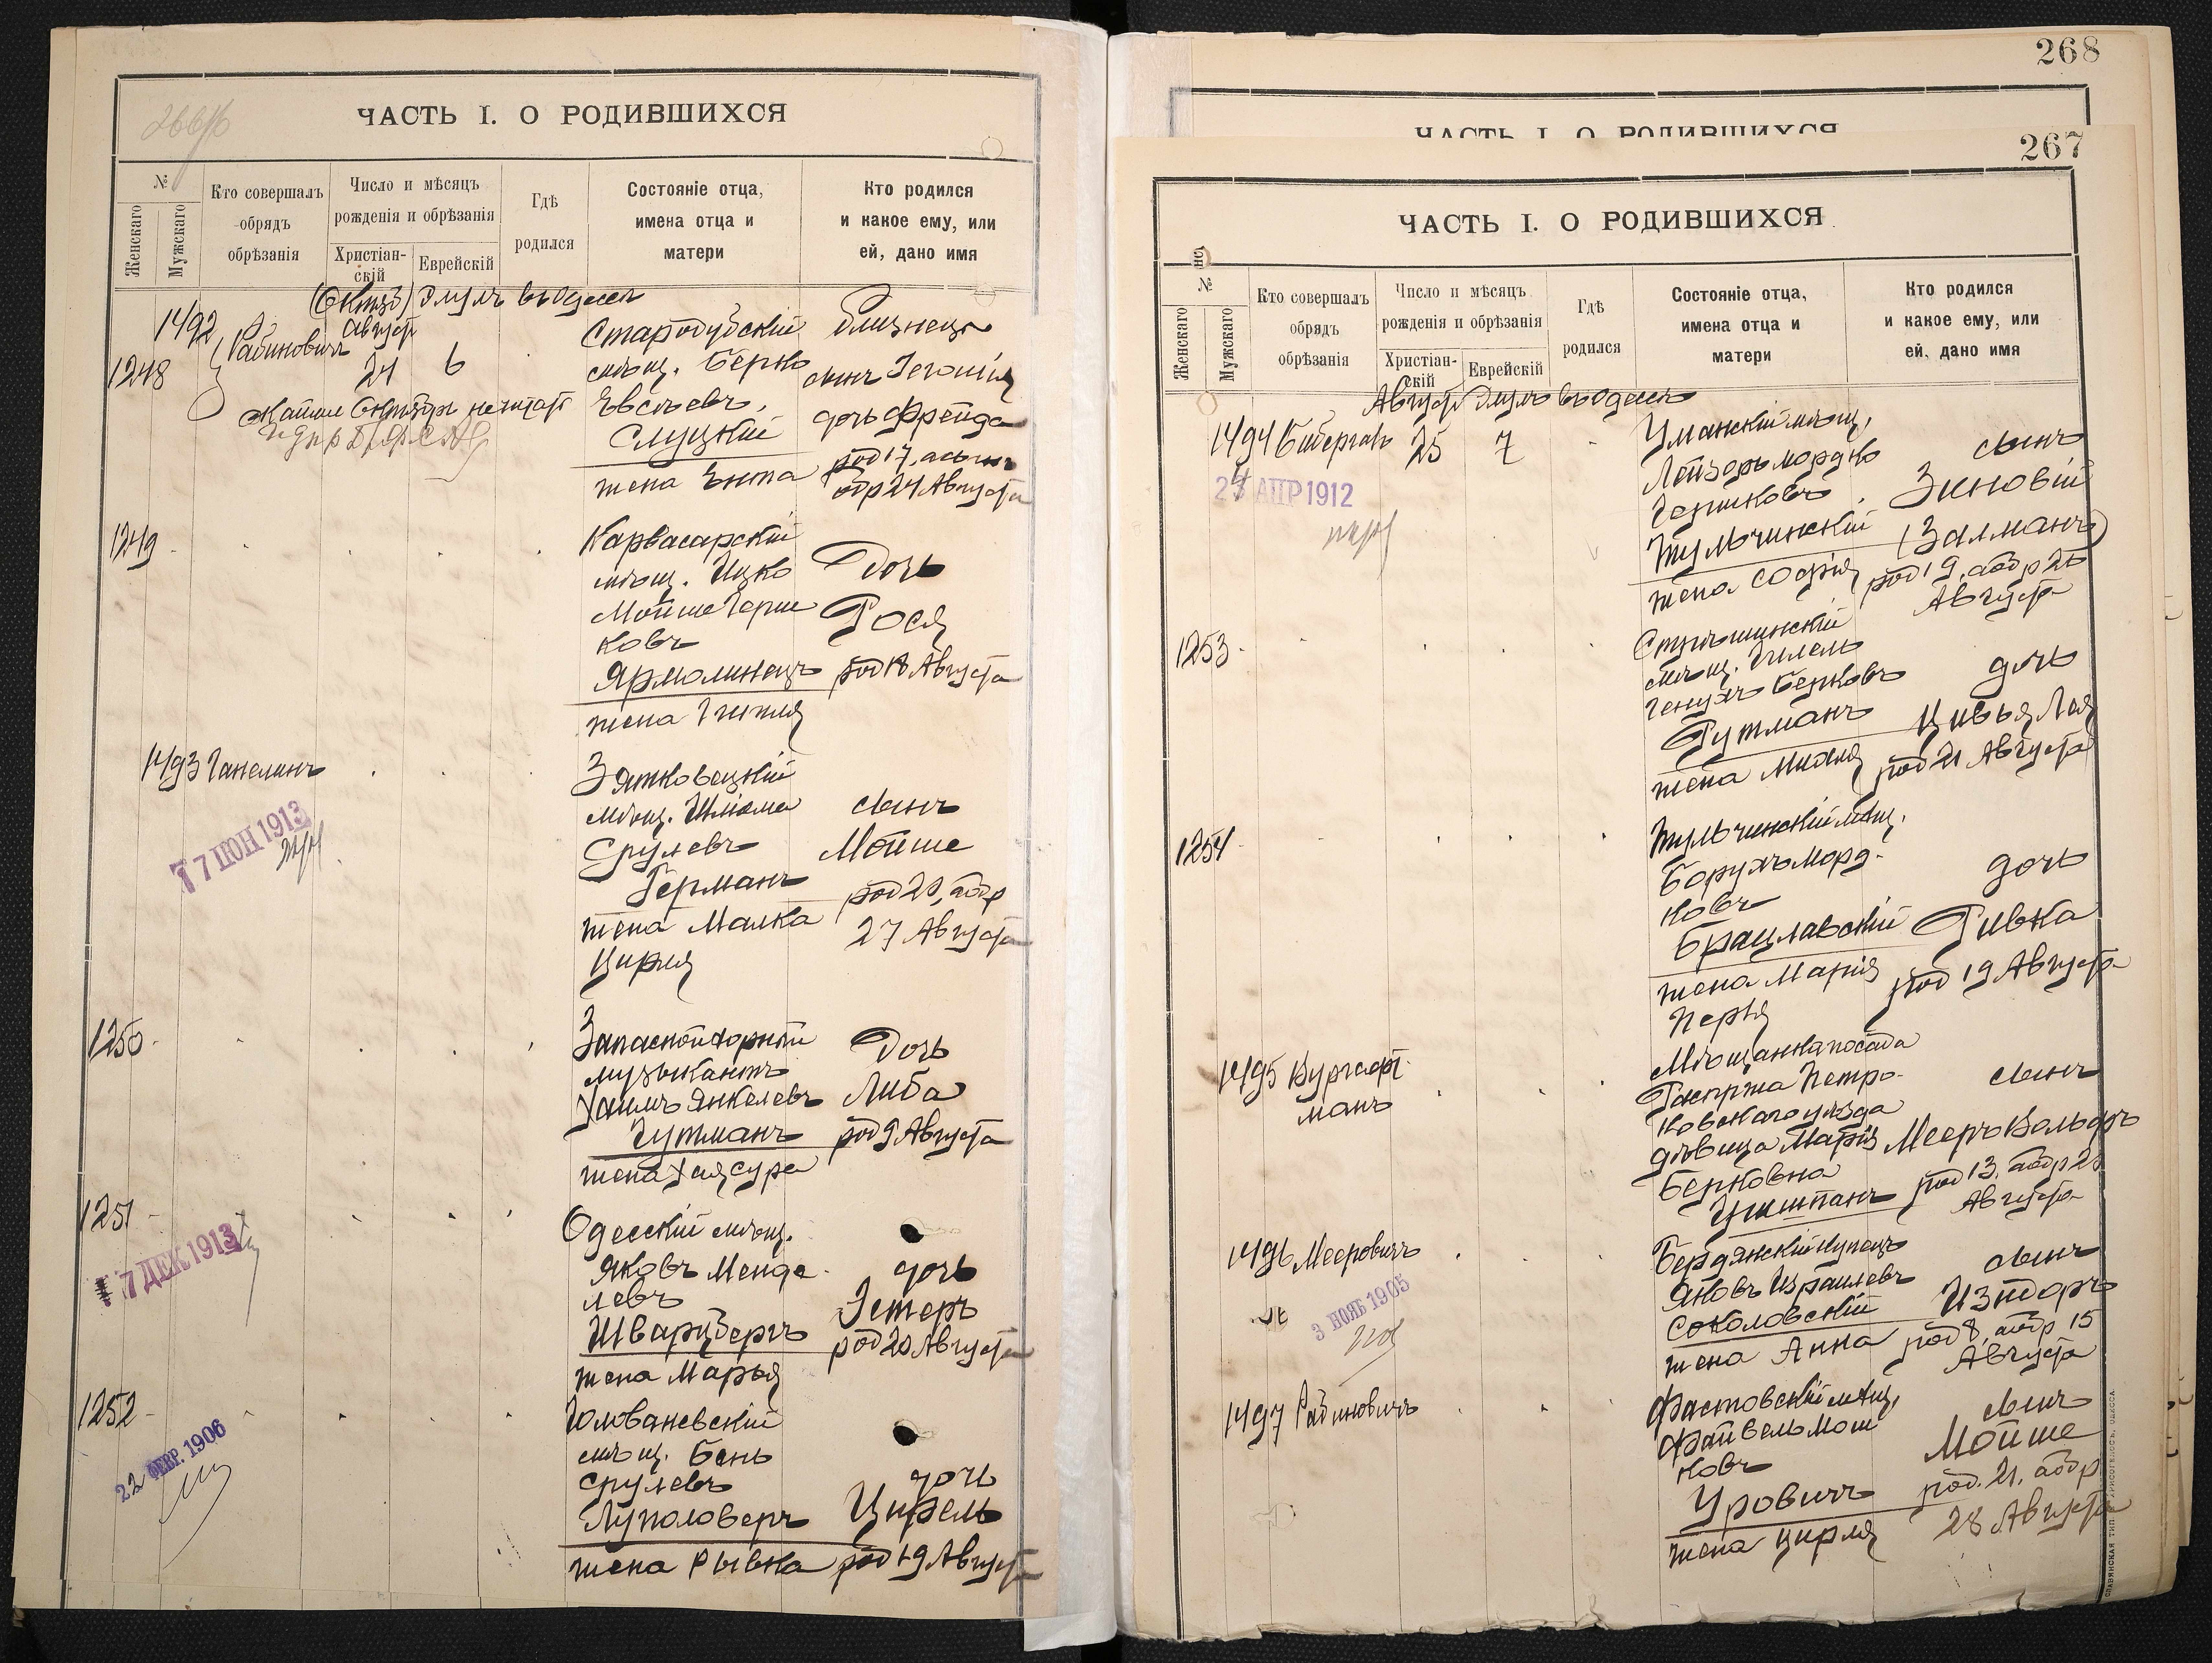 ЧАСТЬ I. О РОДИВШИХСЯ
№
Женскаго
Мужскаго
Кто совершалъ
обрядъ
обрѣзанія
Число и мѣсяцъ
рожденія и обрѣзанія
Христіан-
скій
Еврейскій
Гдѣ
родился
Состояніе отца,
имена отца и
матери
Кто родился
и какое ему, или
ей, дано имя
Августъ
Элулъ въ Одессѣ
1492
1248
Рабиновичъ
24
6
Стародубскій
мѣщ. Берко
Евсѣевъ
Слуцкій
жена Энта
близнецы
сынъ Іегошія
дочь Фрейда
род 17, а сынъ
обр 24 Августа
1249
Карвасарскій
мѣщ. Ицко
Мойше Герш
ковъ
Ярмолинецъ
Дочь
Рося
род 18 Августа
1493 Ганелинъ
7 ІЮН 1913
Зятковецкій
мѣщ. Шлiома
Срулевъ
Герман
жена Малка
Цирля
сынъ
Мойше
род 20, а обр
27 Августа
1250
Запасной хорный
музыкантъ
Хаимъ Янкелевъ
Гутманъ
жена Хая Сура
Дочь
Либа
род 9 Августа
1251
7 ДЕК 1913
Одесскій мѣщ.
Яковъ Менде
левъ
Шварцбергъ
жена Марья
дочь
Эстеръ
род 20 Августа
1252
22 ФЕВР. 1906
Голованевскій
мѣщ. Бень
Срулевъ
Луполоверъ
жена Рывка
дочь
Цирель
род 19 Августа
268
ЧАСТЬ I. О РОДИВШИХСЯ
267
ЧАСТЬ I. О РОДИВШИХСЯ
№
Женскаго
Мужскаго
Кто совершалъ
обрядъ
обрѣзанія
Число и мѣсяцъ
рожденія и обрѣзанія
Христіан-
скій
Еврейскій
Гдѣ
родился
Состояніе отца,
имена отца и
матери
Кто родился
и какое ему, или
ей, дано имя
Августъ Элулъ въ Одессѣ
1494
25
7
АПР 1912
Уманскій мѣщ.
Лейзоръ Мордко
Тульчинскій
жена Софія
сынъ
Зиновій
(Залманъ)
род 19, а обр 25
Августа
1253
мѣщ. Гилель
Генухъ Берковъ
Гутманъ
жена
дочь
Цивья Лея
род 21 Августа
1254
Тульчинскій мѣщ.
Борухъ Морд-
ковъ
Брацлавскій
жена Марія
Перля
дочь
Ривка
род 19 Августа
1495 Кургафт-
манъ
Мѣщанка посада
Распржа Петро-
ковскаго уѣзда
дѣвица Марія
Берковна
сынъ
Мееръ Вольфъ
род 13, а обр 20
Августа
1496 Мееровичъ
3 НОЯБ 1905
Бердянскій купецъ
Яковъ Израилевъ
Соколовскій
жена Анна
сынъ
Изидоръ
род 8, а обр 15
Августа
1497 Рабиновичъ
Фастовскій мѣщ.
Файвель Мош
ковъ
Уровичъ
жена Цирля
сынъ
Мойше
род. 21, а обр
28 Августа
СЛАВЯНСКАЯ ТИП